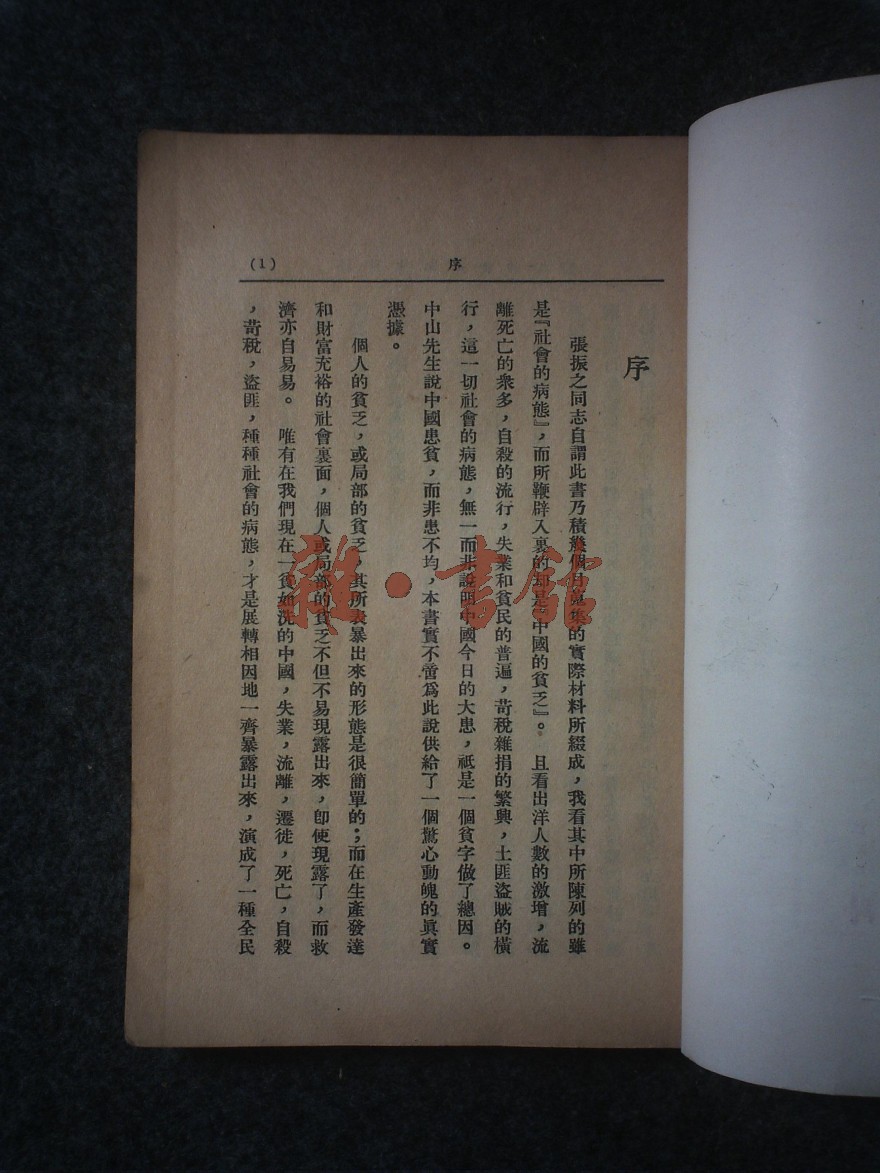 序
(1)
序
張振之同志自謂此書乃積幾個月蒐集的實際材料所綴成，我看其中所陳列的雖
是『社會的病態』，而所鞭辟入裏的却是『中國的貧乏』。 且看出洋人數的激增，流
離死亡的衆多，自殺的流行，失業和貧民的普遍，苛稅雜捐的繁興，土匪盜賊的橫
行，這一切社會的病態，無一而非說明中國今日的大患，祇是一個貧字做了總因。
中山先生說中國患貧，而非患不均，本書實不啻爲此說供給了一個驚心動魄的眞實
憑據。
個人的貧乏，或局部的貧乏，其所表暴出來的形態是很簡單的；而在生產發達
和財富充裕的社會裏面，個人或局部的貧乏不但不易現露出來，卽使現露了，而救
濟亦自易易。 唯有在我們現在一貧如洗的中國，失業，流離，遷徙，死亡，自殺
，苛稅，盜匪，種種社會的病態，才是展轉相因地一齊暴露出來，演成了一種全民
雜·書館